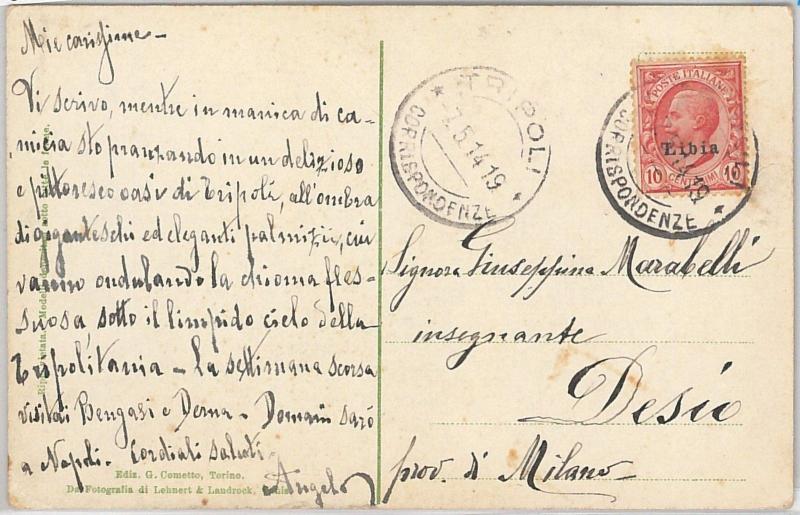 Mie carissime -
Vi scrivo, mentre in manica di ca-
micia sto pranzando in un delizioso
e pittoresco oasi di Tripoli, all'ombra
di giganteschi ed eleganti palmizi, cui
vanno ondulando la chioma fles-
suosa, sotto il limpido cielo della
Tripolitania - La settimana scorsa
visitai Bengasi e Derna - Domani sarò
a Napoli. Cordiali saluti -
Angelo
Ediz. G. Cometto, Torino.
Da Fotografia di Lehnert & Landrock,
TRIPOLI
7.5.14 19
CORRISPONDENZE
POSTE ITALIANE
Libia
10 CENTESIMI 10
19
CORRISPONDENZE
Signora Giuseppina Marabelli
insegnante
Desio
prov. di Milano -